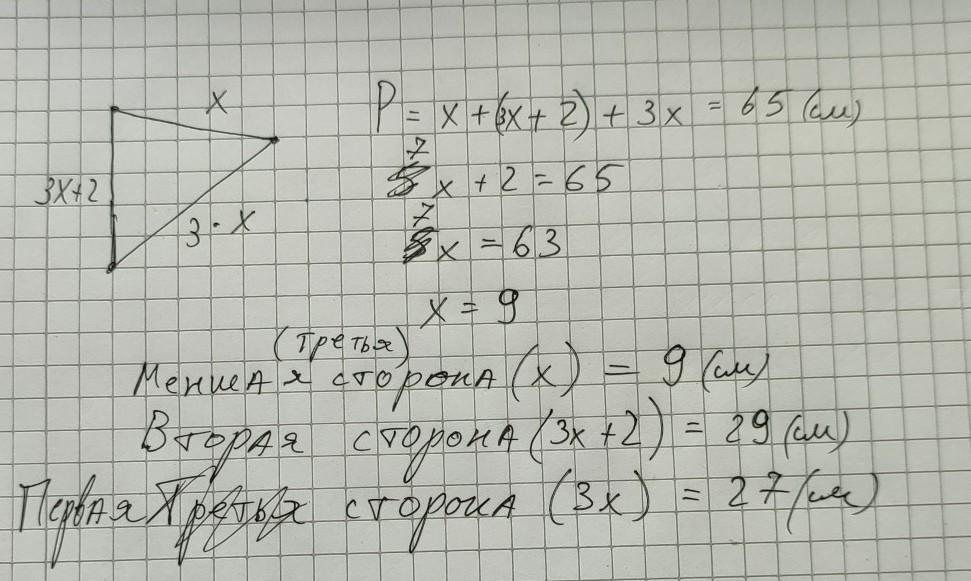 x
3x+2
3 · x
P = x + (3x + 2) + 3x = 65 (см)
7x + 2 = 65
7x = 63
x = 9
(третья)
Меншая сторона (x) = 9 (см)
Вторая сторона (3x + 2) = 29 (см)
Первая Третья сторона (3x) = 27 (см)